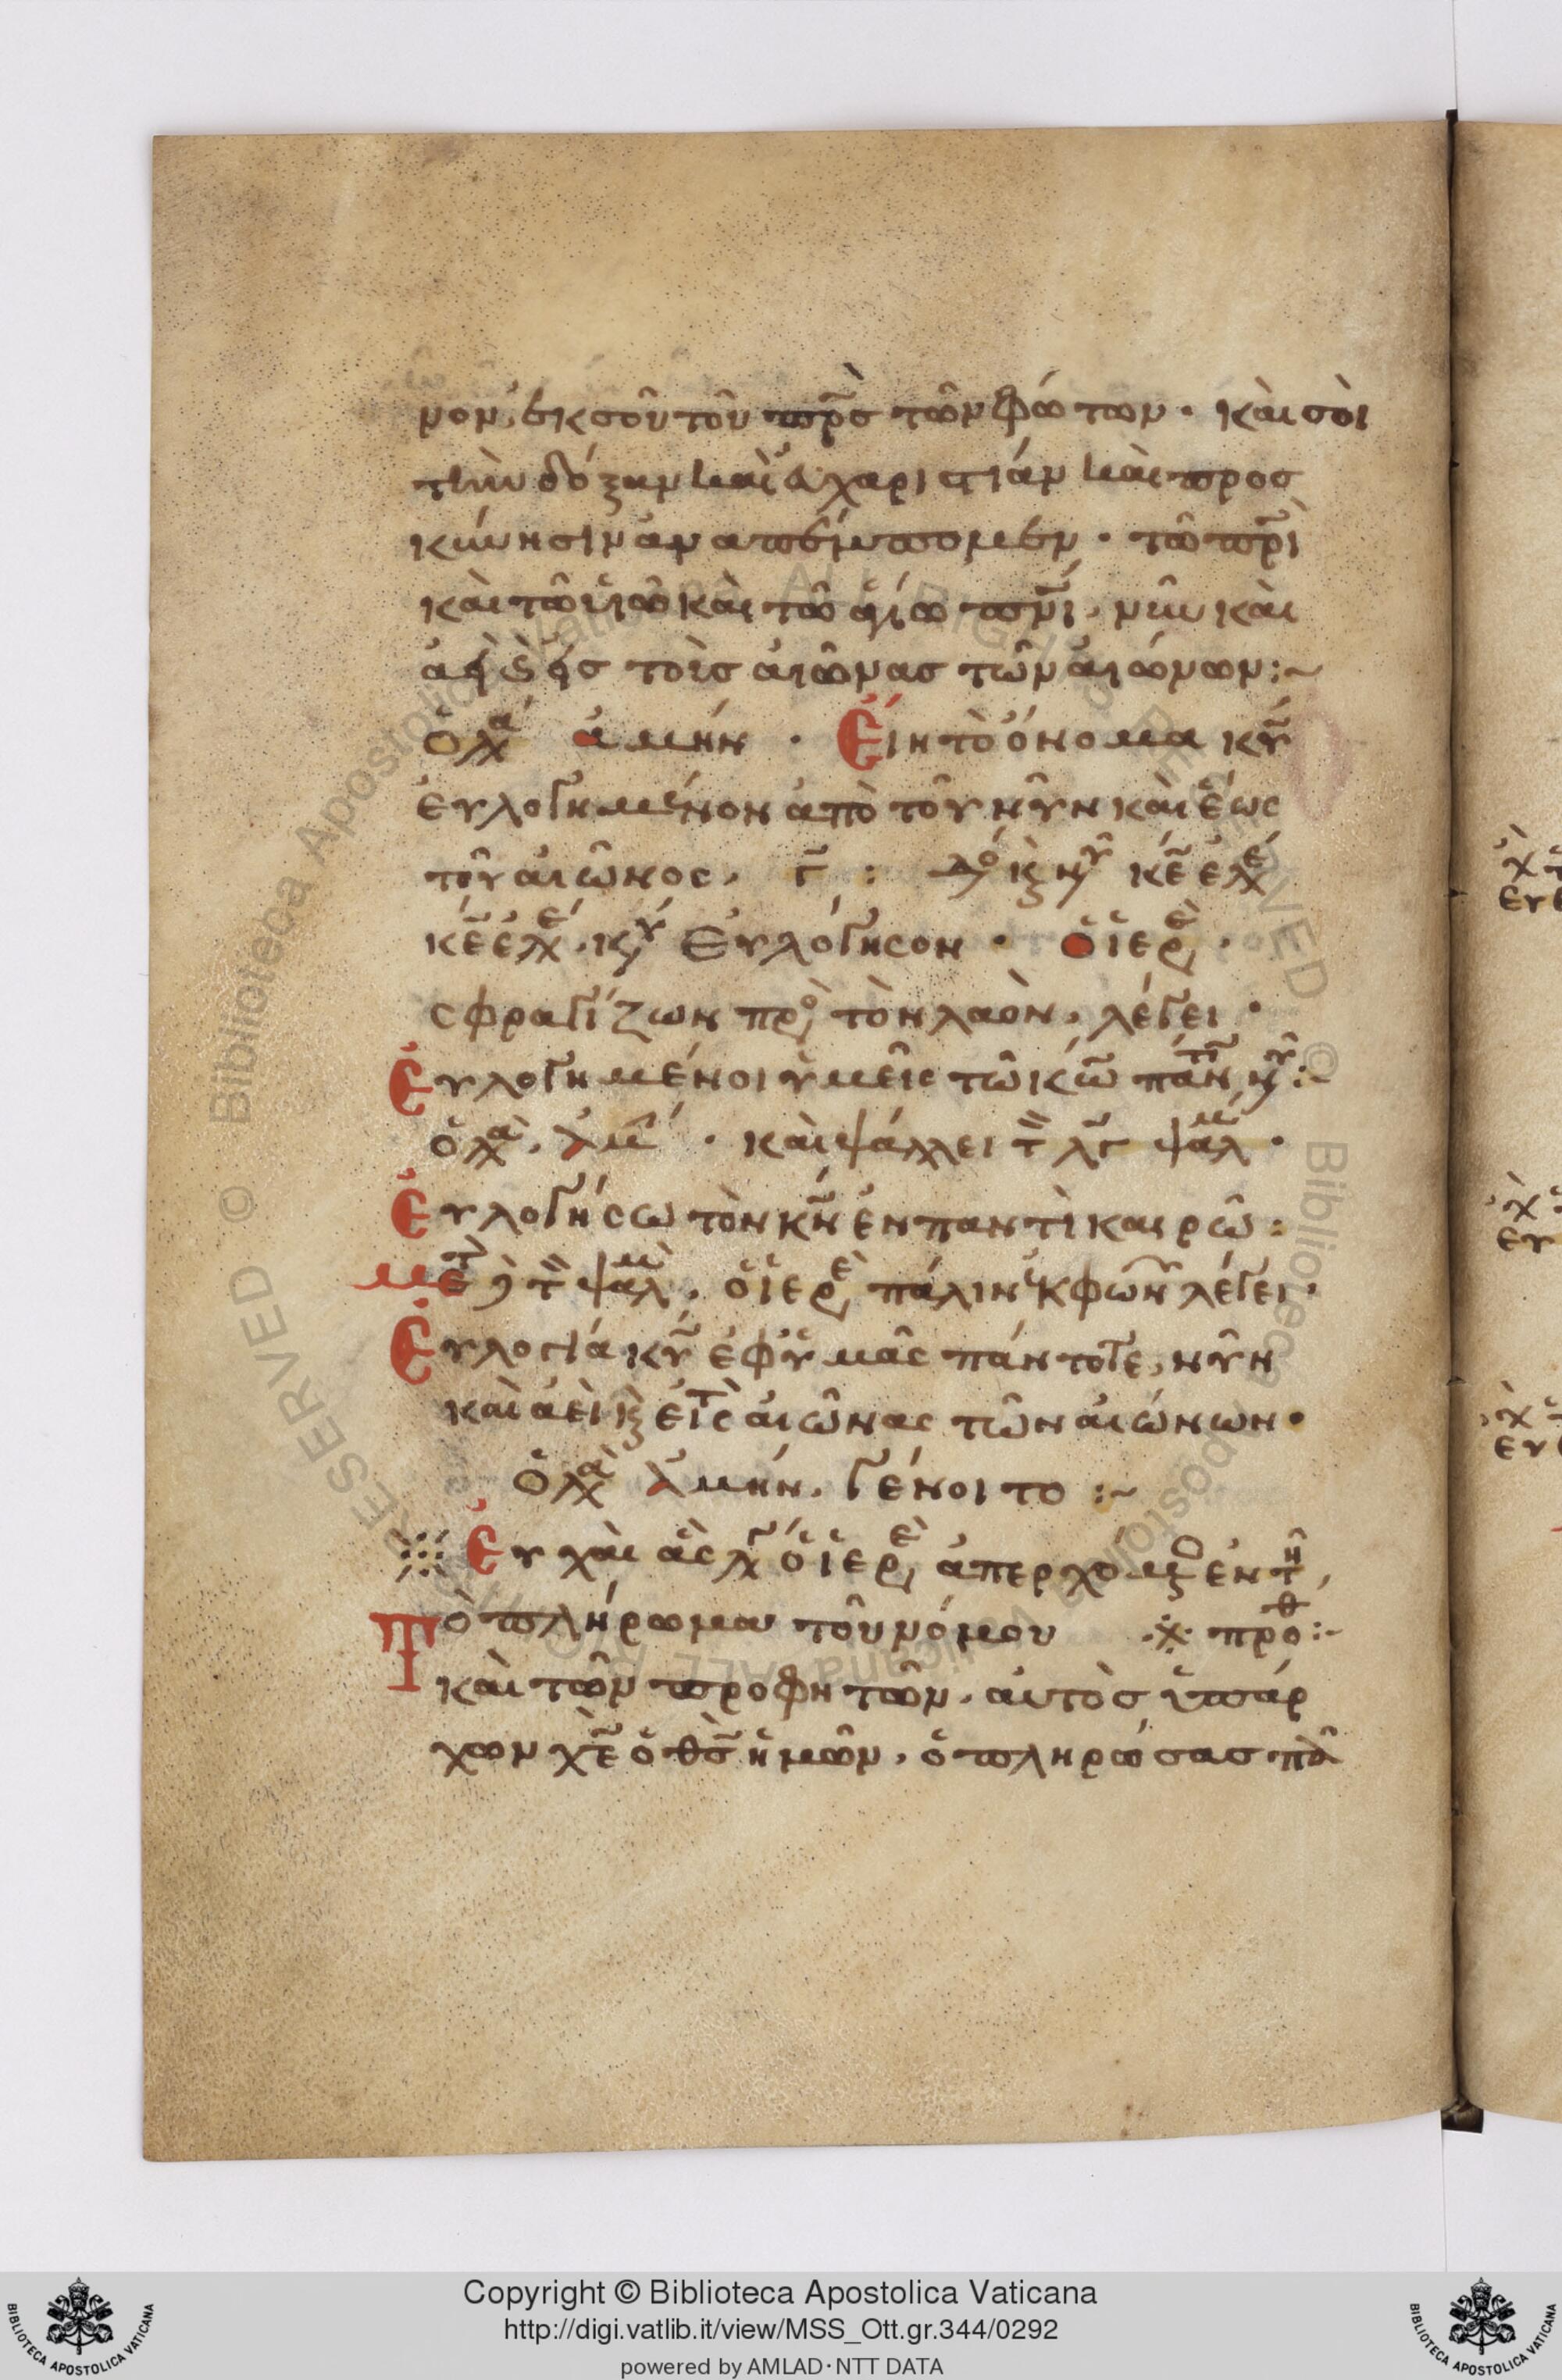 νον, ἐκ σοῦ τοῦ πρ̅ς τῶν φώτων · καὶ σοὶ
τὴν δόξαν καὶ εὐχαριστίαν καὶ προσ
κύνησιν ἀναπέμπομεν · τῶ πρ̅ι
καὶ τῶ υἱῶ καὶ τῶ ἁγίω πν̅ι, νῦν καὶ
ἀεὶ καὶ εἰς τοὺς αἰῶνας τῶν αἰώνων :~
ὁ λα ἀμήν · Εἴη τὸ ὄνομα κυ̅
εὐλογημένον ἀπὸ τοῦ νῦν καὶ ἕως
τοῦ αἰῶνος, γ̅ : δο κ νυ κε̅ ἐλε
κε̅ ἐλε, κυ εὐλόγησον · ὁ ἱερε ·
σφραγίζων προ τὸν λαὸν, λέγει ·
Εὐλογημένοι ὑμεῖς τῶ κω̅ παντ νυ :~
ὁ λα, ἀμ · καὶ ψάλλει τ λγ ψαλμ ·
Εὐλογήσω τὸν κν̅ ἐν παντὶ καιρῶ :
μετ δὲ τ ψαλμ, ὁ ἱερε πάλιν ἐκφων λέγει ·
Εὐλογία κυ̅ ἐφ' ὑμᾶς πάντοτε, νῦν
καὶ ἀεὶ κ εἰς τ αἰῶνας τῶν αἰώνων ·
ὁ λα Ἀμήν, γένοιτο :~
Εὐχαὶ ἃς λγ ὁ ἱερε ἀπερχομ ἐν τη
Τὸ πλήρωμα τοῦ νόμου προθ :~
καὶ τῶν προφητῶν, αὐτὸς ὑπάρ
χων χε̅ ὁ θς̅ ἡμῶν, ὁ πληρώσας πα
Copyright © Biblioteca Apostolica Vaticana
http://digi.vatlib.it/view/MSS_Ott.gr.344/0292
powered by AMLAD·NTT DATA
BIBLIOTECA APOSTOLICA VATICANA
BIBLIOTECA APOSTOLICA VATICANA